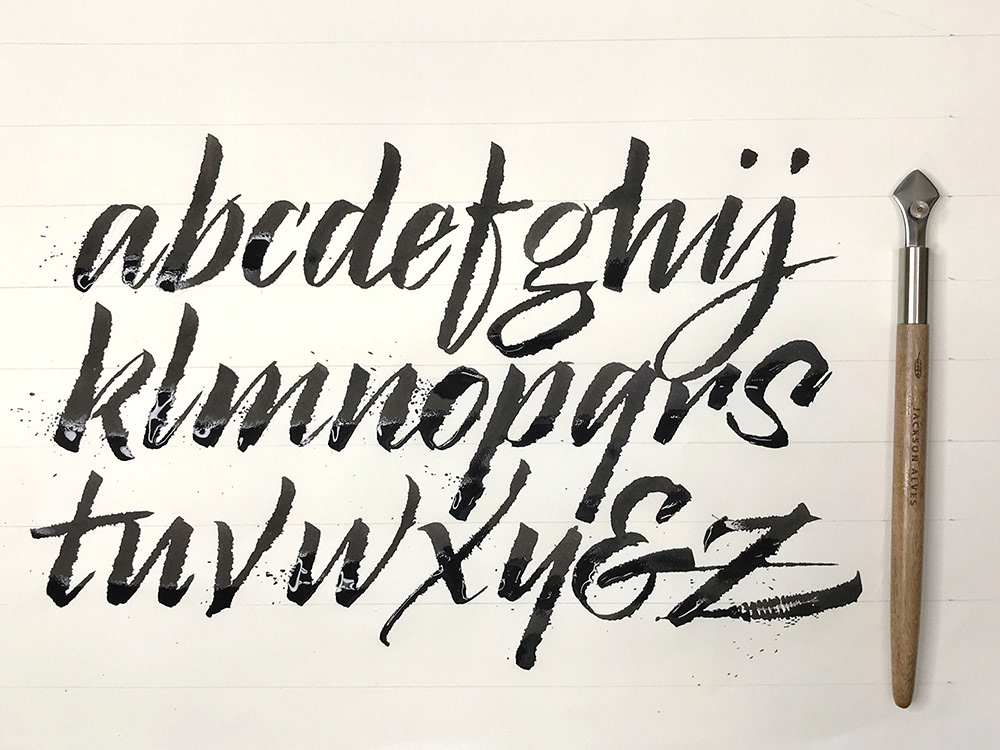 abcdefghij
klmnopqrs
tuvwxy&z
JACKSON ALVES